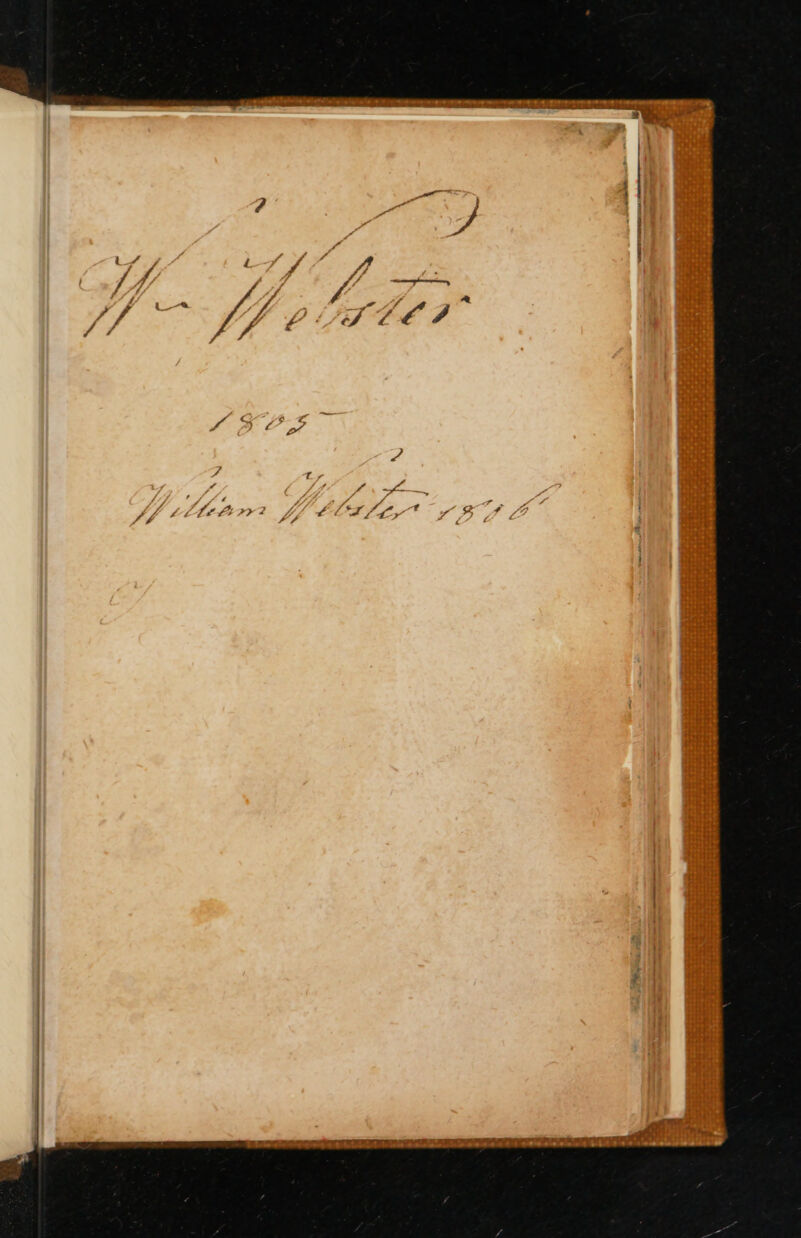 Wm Webster
1805
William Webster 1806